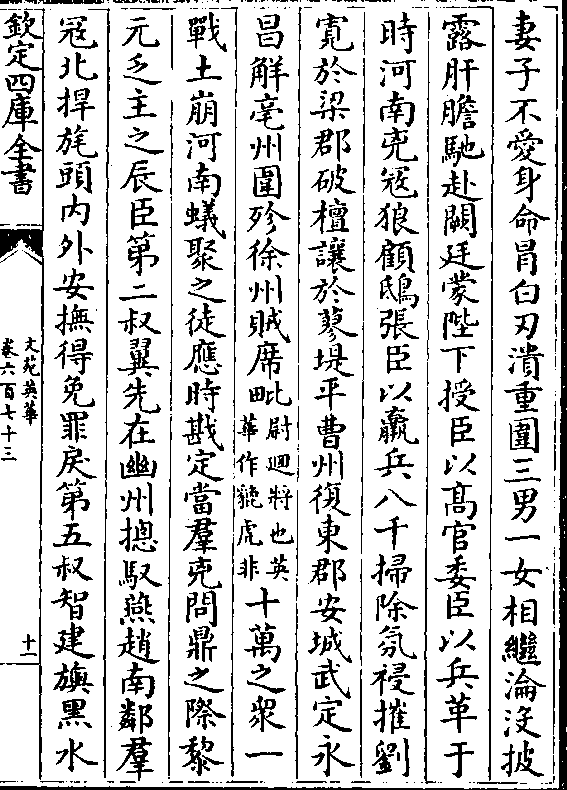 妻子不愛身命冒白刃潰重圍三男一女相繼淪沒披
露肝膽馳赴闕廷蒙陛下授臣以髙官委臣以兵革于
時河南兇冦狼顧鴟張臣以羸兵八千掃除氛祲摧劉
寛於梁郡破檀讓於蓼堤平曹州復東郡安城武定永
昌解亳州圍殄徐州賊席毗尉迥將也英華作貔虎非十萬之衆一
戰土崩河南蟻聚之徒應時戡定當羣兇問鼎之際黎
元乏主之辰臣第二叔翼先在幽州摠馭燕趙南鄰羣
冦北捍旄頭内外安撫得免罪戾第五叔智建旟黑水
欽定四庫全書
文苑英華
卷六百七十三
十一